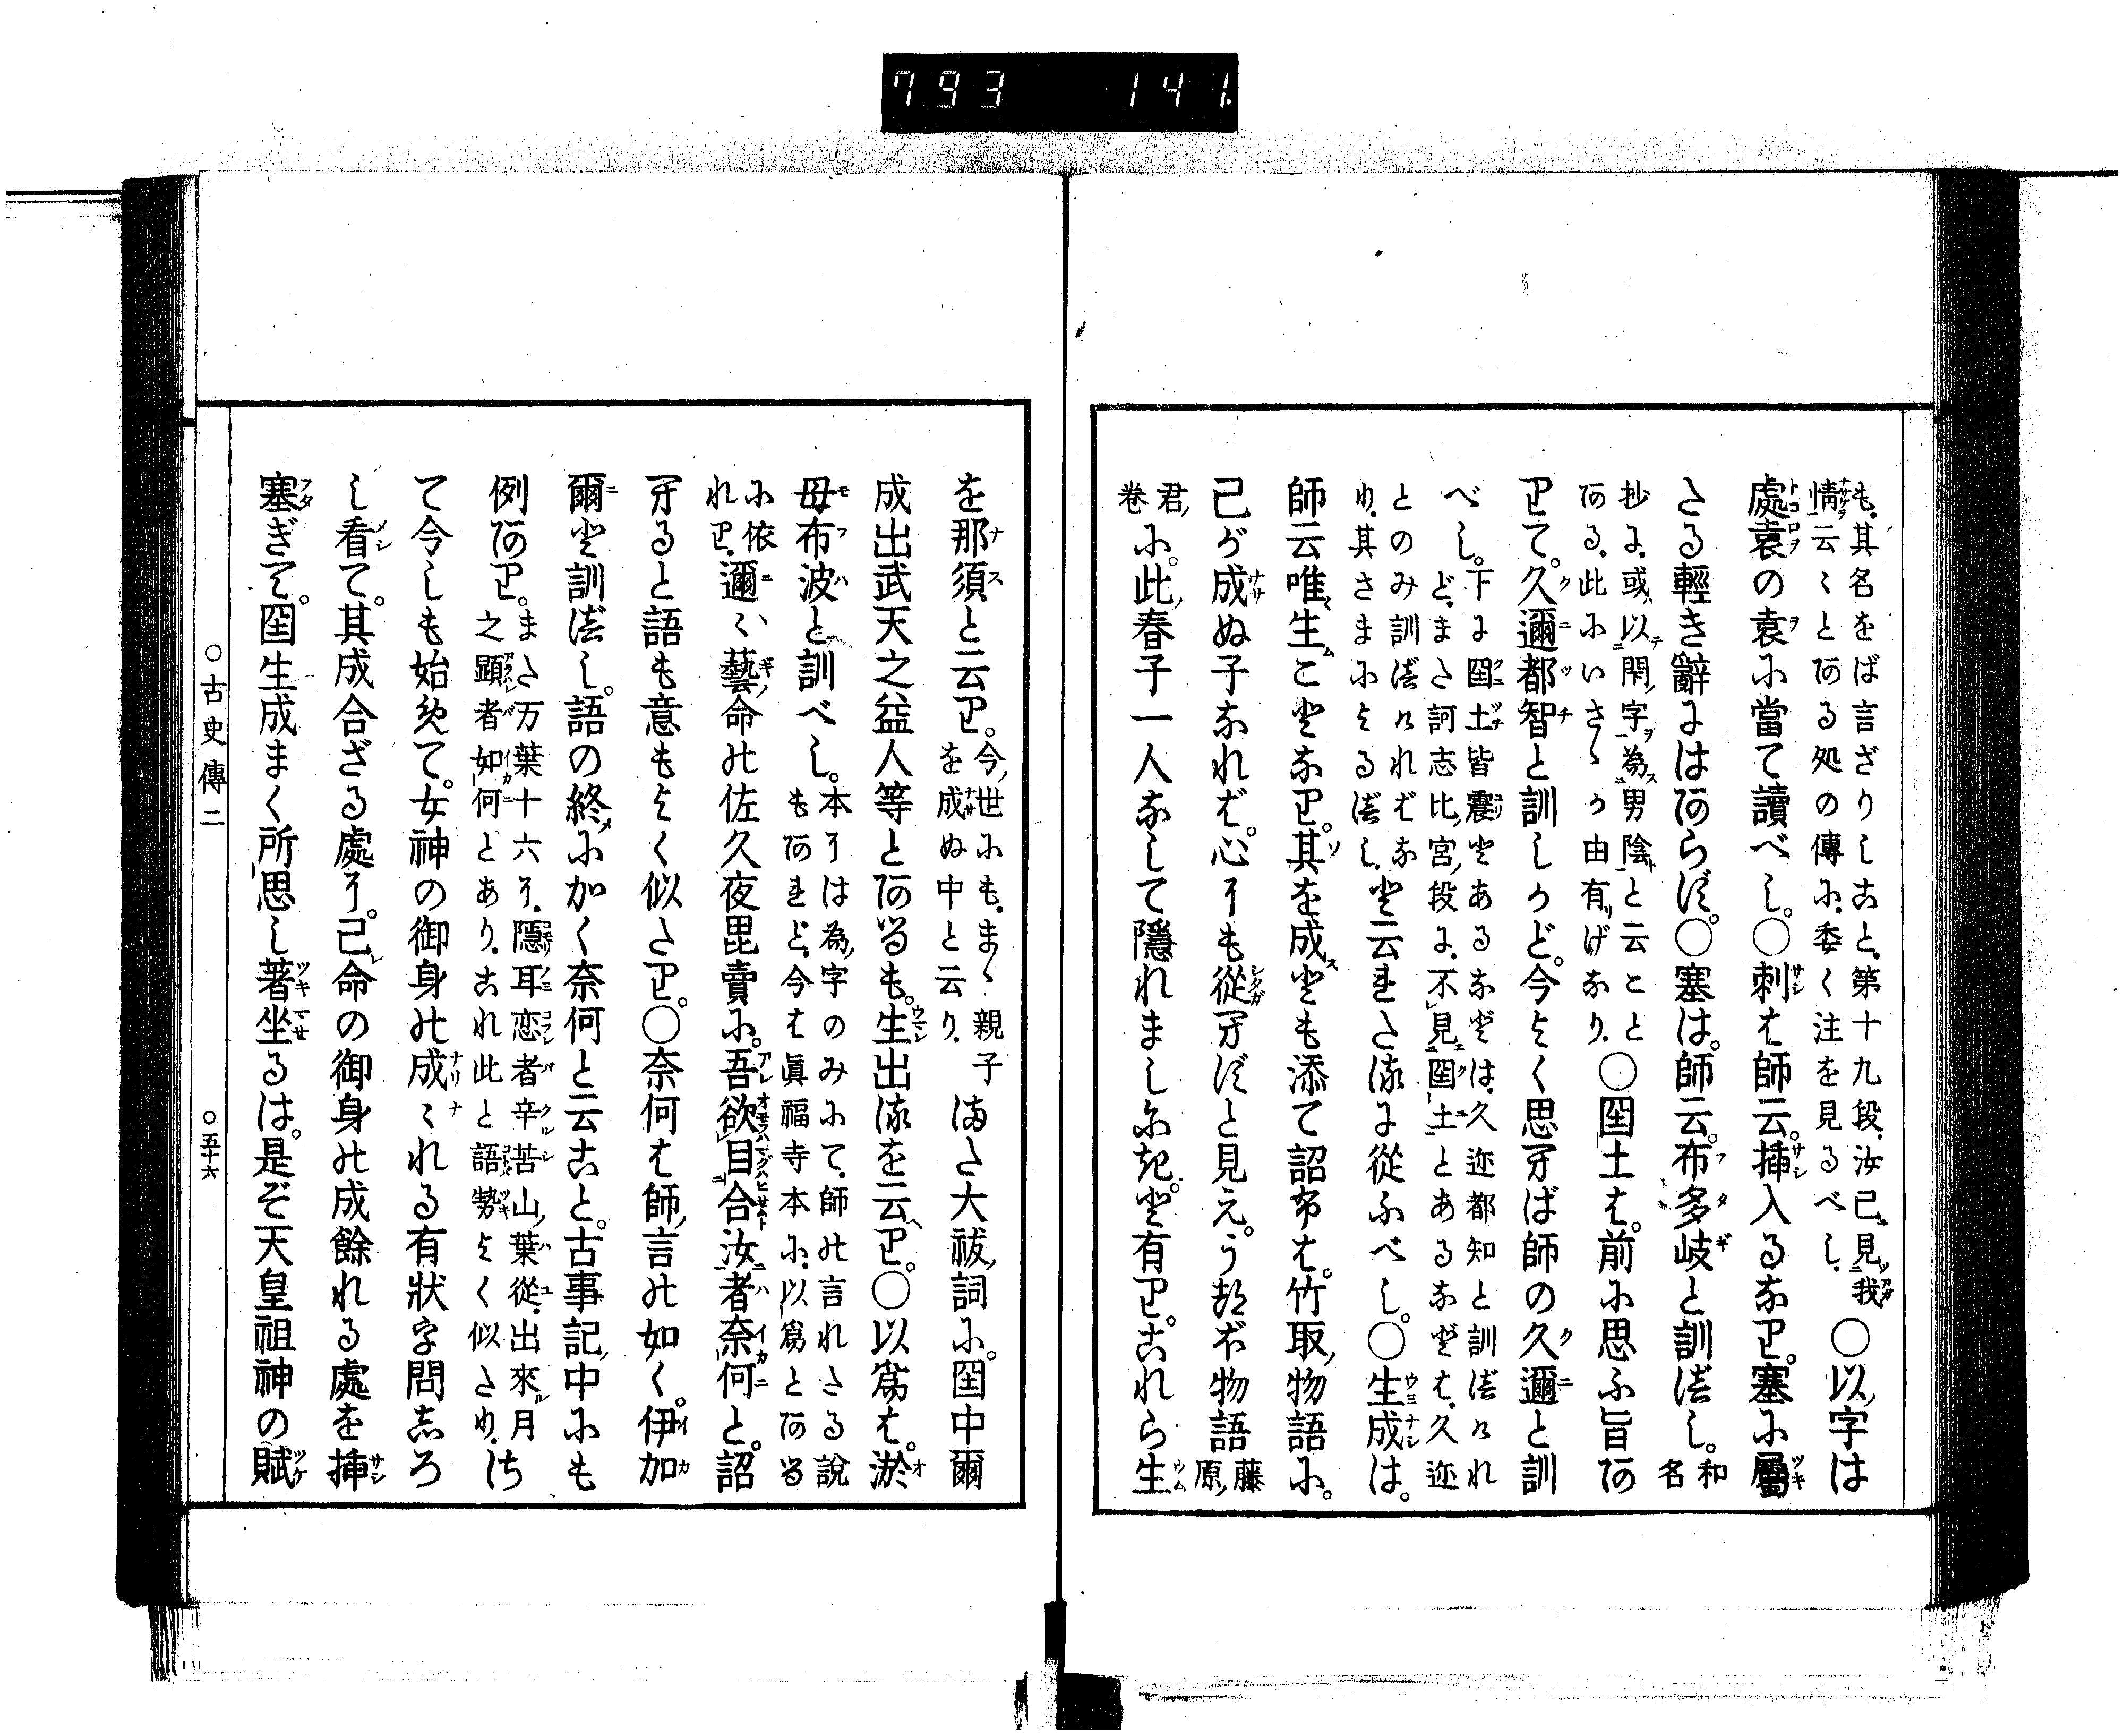 793 141
も、其名をば言ざりしこと、第十九段、汝已見我
情云々とある処の傳に、委く注を見るべし、
○以字は
處袁の袁に當て讀べし。○刺は師云。挿入るなり。塞に屬
たる輕き辭にはあらず。○塞は。師云。布多岐と訓べし。和名
抄に、或以開字為男陰と云こと
ある、此にいさゝか由有げなり、
○国土は。前に思ふ旨あ
りて。久邇都智と訓しかど。今よく思へば師の久邇と訓
べし。
下に国土皆震とあるなどは、久迩都知と訓べけれ
ど、また訶志比宮段に、不見国土とあるなどは、久迩
とのみ訓べければな
り、其さまによるべし、
と云れたるに從ふべし。○生成は。
師云唯生ことなり。其を成とも添て詔ふは。竹取物語に。
己が成ぬ子なれば。心にも從へずと見え。うつぼ物語藤原
君卷に。此春子一人なして隱れましにき。と有り。これら生
を那須と云り。
今世にも、まゝ親子
を成ぬ中と云り、
また大祓詞に。国中爾
成出武天之益人等とあるも。生出るを云へり。○以爲は。淤
母布波と訓べし。
本には為字のみにて、師の言れたる説
もあれど、今は眞福寺本に、以爲とある
に依
れり、
邇々藝命の佐久夜毘賣に。吾欲目合汝者奈何と。詔
へると語も意もよく似たり。○奈何は師言の如く。伊加
爾と訓べし。語の終にかく奈何と云こと。古事記中にも
例あり。
また万葉十六に、隱耳恋者辛苦山葉從出來月
之顯者如何とあり、これ此と語勢よく似たり、
さ
て今しも始めて。女神の御身の成々れる有狀を問しろ
し看て。其成合ざる處に。己命の御身の成餘れる處を挿
塞ぎて。国生成まく所思し著坐るは。是ぞ天皇祖神の賦
○古史傳二
○五十六